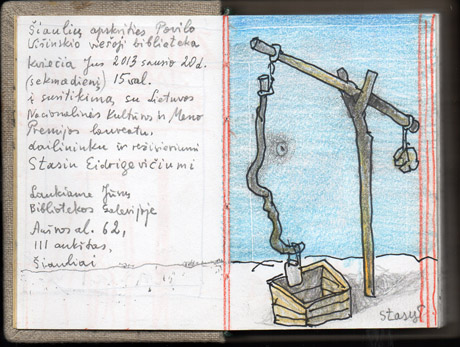 Šiaulių apskrities Povilo
Višinskio viešoji biblioteka
kviečia Jus 2013 sausio 20 d.
(sekmadienį) 15 val.
į susitikimą su Lietuvos
Nacionalinės Kultūros ir Meno
Premijos laureatu,
dailininku ir režisieriumi
Stasiu Eidrigevičiumi
Laukiame Jūsų
Bibliotekos galerijoje
Aušros al. 62,
III aukštas,
Šiauliai
Stasys